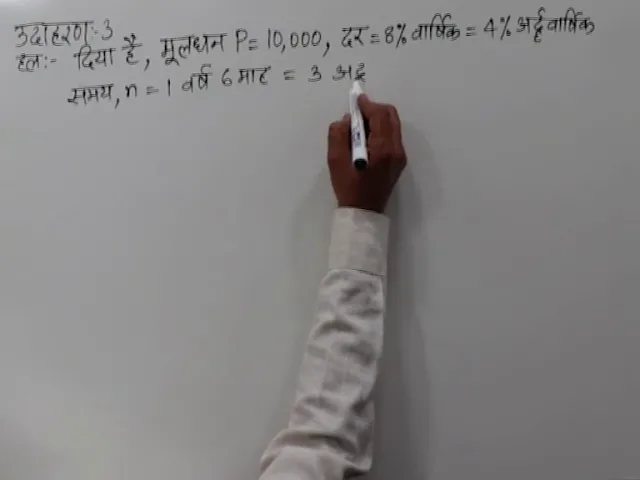 उदाहरण:-3
हल:- दिया है, मूलधन P = 10,000, दर = 8% वार्षिक = 4% अर्द्धवार्षिक
समय, n = 1 वर्ष 6 माह = 3 अर्द्ध